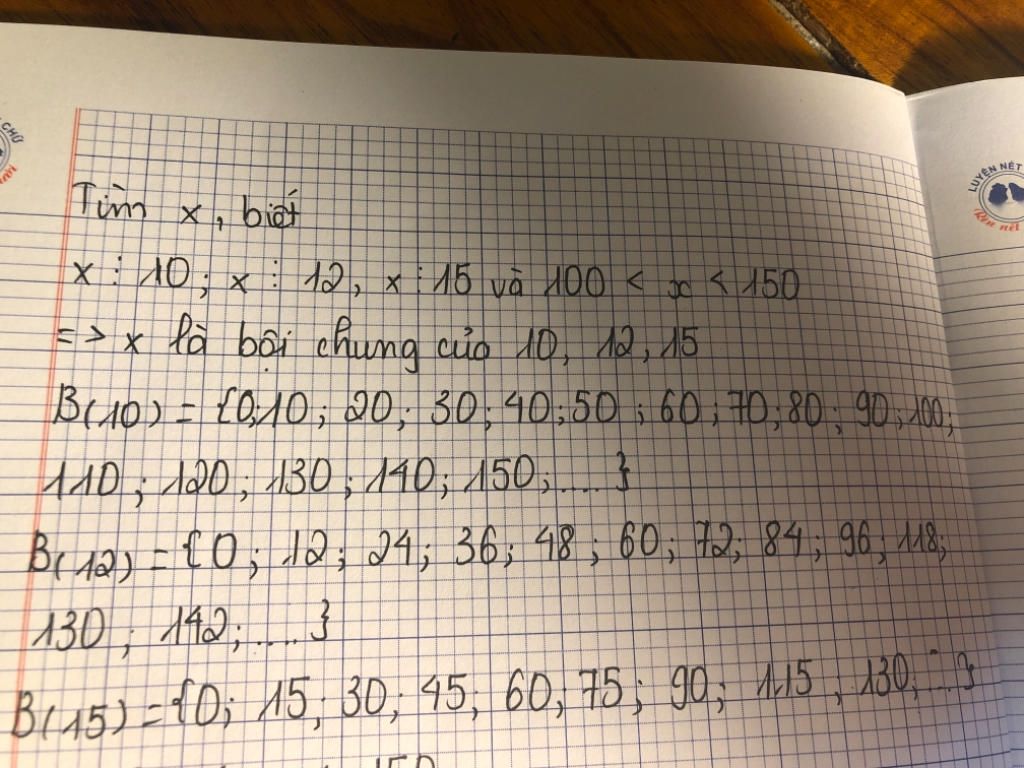 CHỮ
LUYỆN NÉT
Rèn nết
Tìm x, biết
x ⋮ 10; x ⋮ 12, x ⋮ 15 và 100 < x < 150
=> x là bội chung của 10, 12, 15
B(10) = {0,10; 20; 30; 40; 50; 60; 70; 80; 90; 100;
110; 120; 130; 140; 150; ....}
B(12) = {0; 12; 24; 36; 48; 60; 72; 84; 96; 118;
130; 142; ....}
B(15) = {0; 15; 30; 45; 60; 75; 90; 115; 130; ...}
150